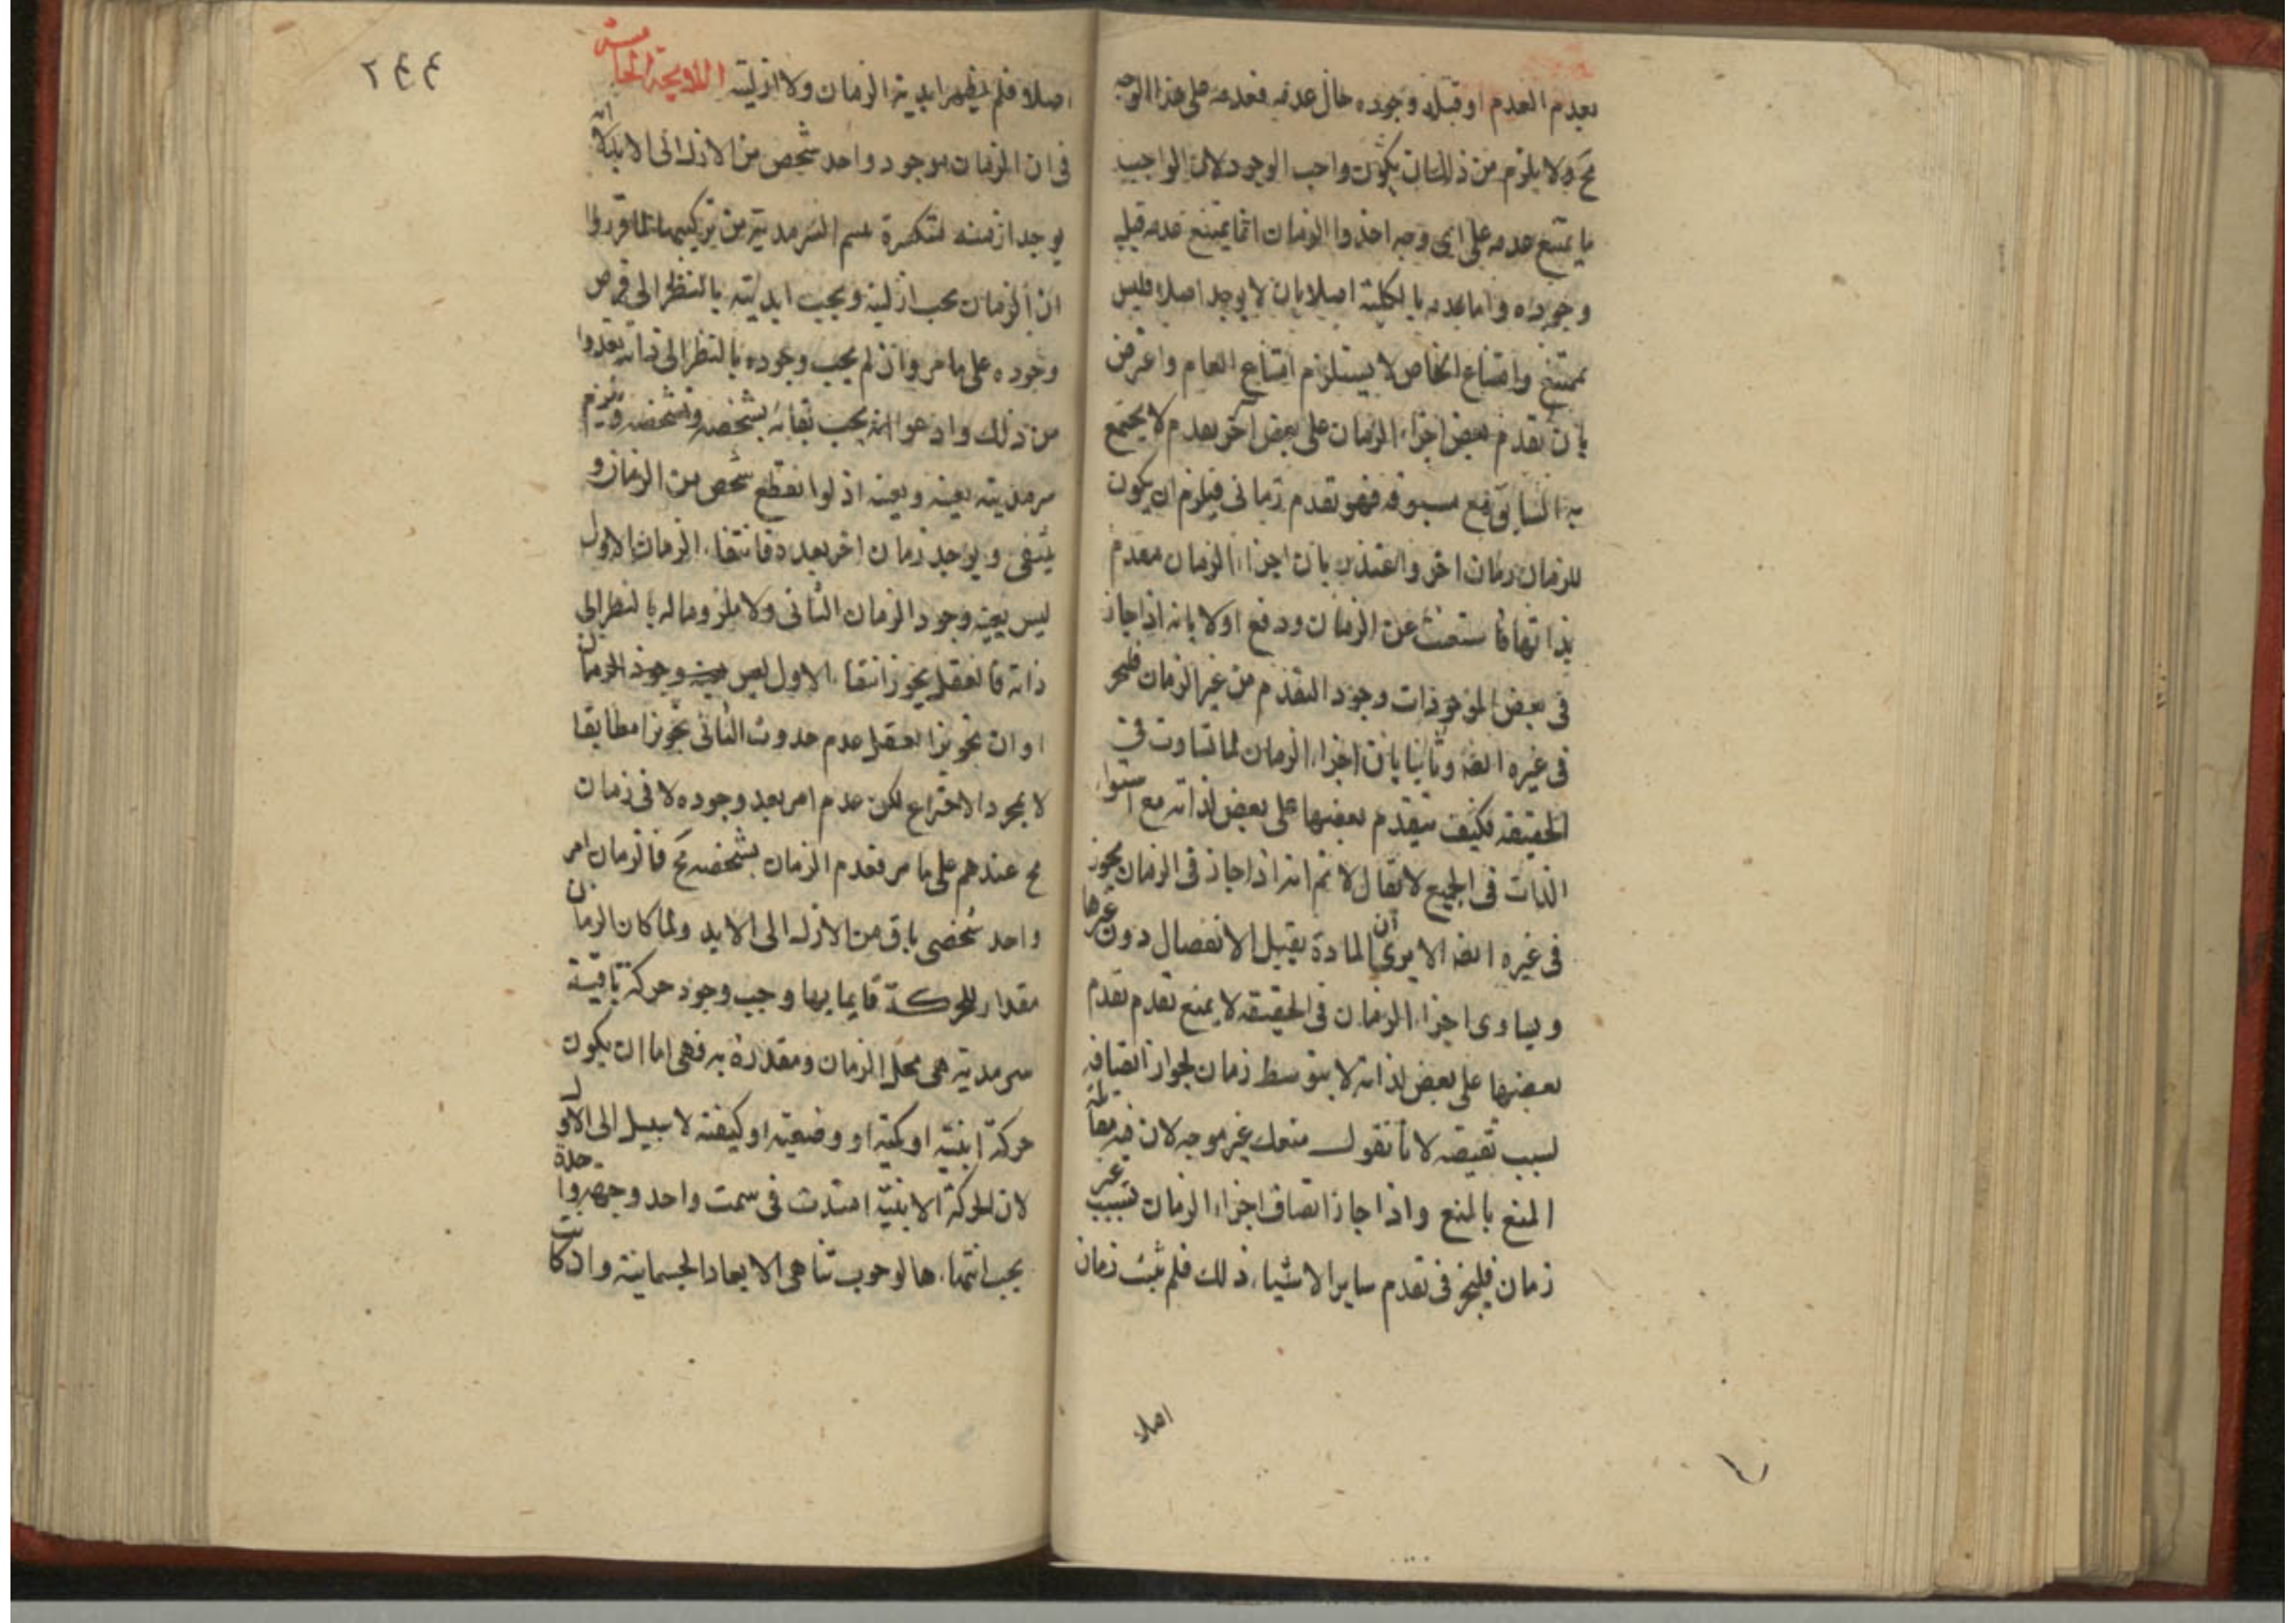 بعدم العدم او قبله وجوده حال عدمه فعدمه على هذا الوجه
مح ولا يلزم من ذلك ان يكون واجب الوجود لان الواجب
ما يمتنع عدمه على اى وجه اخذ والزمان انما يمتنع عدمه قبل
وجوده واما عدمه بالكلية اصلا بان لا يوجد اصلا فليس
بممتنع وامتناع الخاص لا يستلزم امتناع العام واعترض
بان تقدم بعض اجزاء الزمان على بعض آخر بعدم لا يجتمع
به السابق مع مسبوقه فهو تقدم زمانى فيلزم ان يكون
للزمان زمان اخر واعتذر بان اجزاء الزمان مقدم
بذاتها فاستغنت عن الزمان ودفع اولا بانه اذا جاز
فى بعض الموجودات وجود التقدم من غير الزمان فليجز
فى غيره ايضا وثانيا بان اجزاء الزمان لما تساوت فى
الحقيقة فكيف يتقدم بعضها على بعض لذاته مع استواء
الذات فى الجميع لا يقال لا نم انه اذا جاز فى الزمان يجوز
فى غيره ايضا الا يرى ان المادة يقبل الانفصال دون غيرها
ويساوى اجزاء الزمان فى الحقيقة لا يمنع تقدم تقدم
بعضها على بعض لذاته لا بتوسط زمان لجواز اتصافه
لانا نقول منعك غير موجه لان فيه مقابلة
المنع بالمنع واذا جاز اتصاف اجزاء الزمان بسبب غير
زمان فليجز فى تقدم ساير الاشياء ذلك فلم يثبت زمان
اصلا
٢٤٤
اصلا فلم يظهر ابدية الزمان ولا ازليته اللايحة الخامسة
فى ان الزمان موجود واحد شخص من الازل الى الابد لا انه
يوجد ازمنة متكثرة السرمدية من تركيبها لما قرروا
ان الزمان يجب ازليته ويجب ابديته بالنظر الى فرض
وجوده على ما مر وان لم يجب وجوده بالنظر الى ذاته تعدوا
من ذلك وادعوا انه يجب بقائه بشخصه وتشخصه ويلزم
سرمديته بعينه اذ لو انقطع شخص من الزمان و
ينتفى ويوجد زمان اخر بعده فانتفاء الزمان الاول
ليس بعينه وجود الزمان الثانى ولا ملزوما له بالنظر الى
ذاته فالعقل يجوز انتفاء الاول ليس بعينه وجود الزمان
او ان تجويز العقل عدم حدوث الثانى تجويزا مطابقا
لا بمجرد الاختراع لكن عدم امر بعد وجوده لا فى زمان
مح عندهم على ما مر فعدم الزمان بشخصه مح فالزمان امر
واحد شخصى باق من الازل الى الابد ولما كان الزمان
مقدار للحركة قايما بها وجب وجود حركة باقية
سرمدية هى محل الزمان ومقدرة به فهى اما ان يكون
حركة اينية او كمية او وضعية او كيفية لا سبيل الى الاول
لان الحركة الاينية امتدت فى سمت واحد وجهة واحدة
يجب انتهاءها لوجوب تناهى الابعاد الجسمانية وان كانت